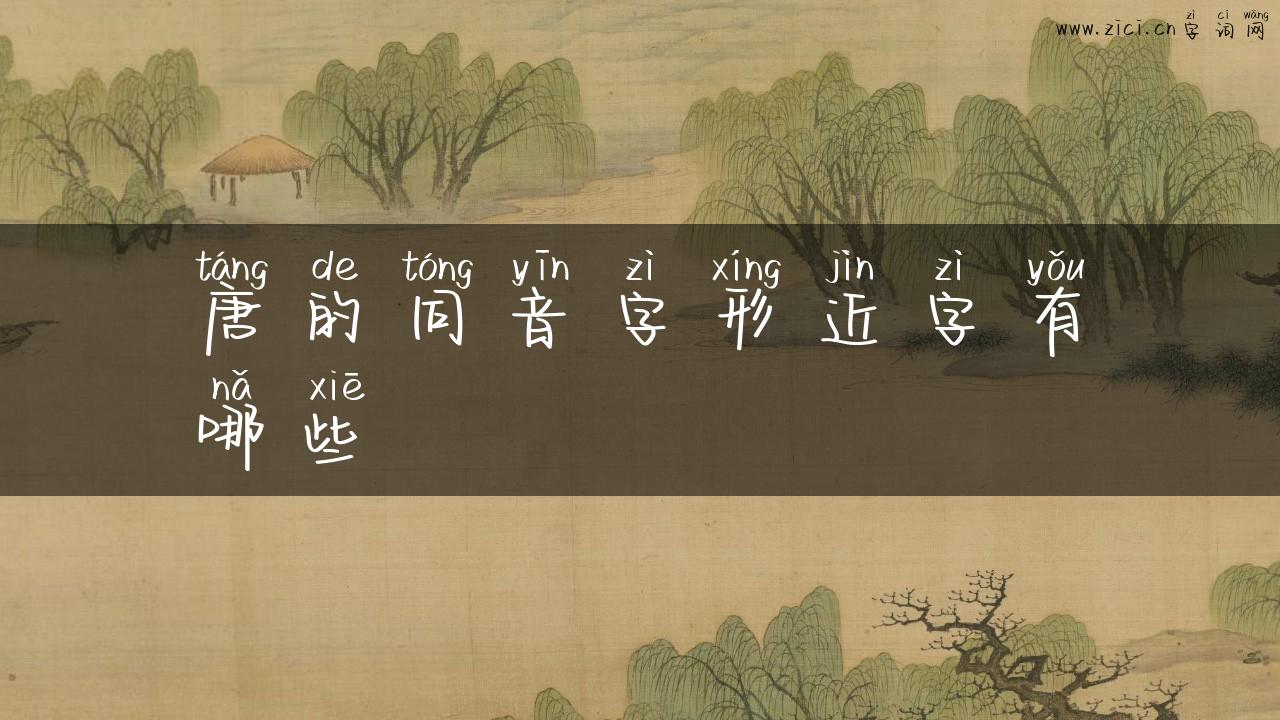 zì cí wǎng
www.zici.cn 字 词 网
táng de tóng yīn zì xíng jìn zì yǒu
唐 的 同 音 字 形 近 字 有
nǎ xiē
哪 些